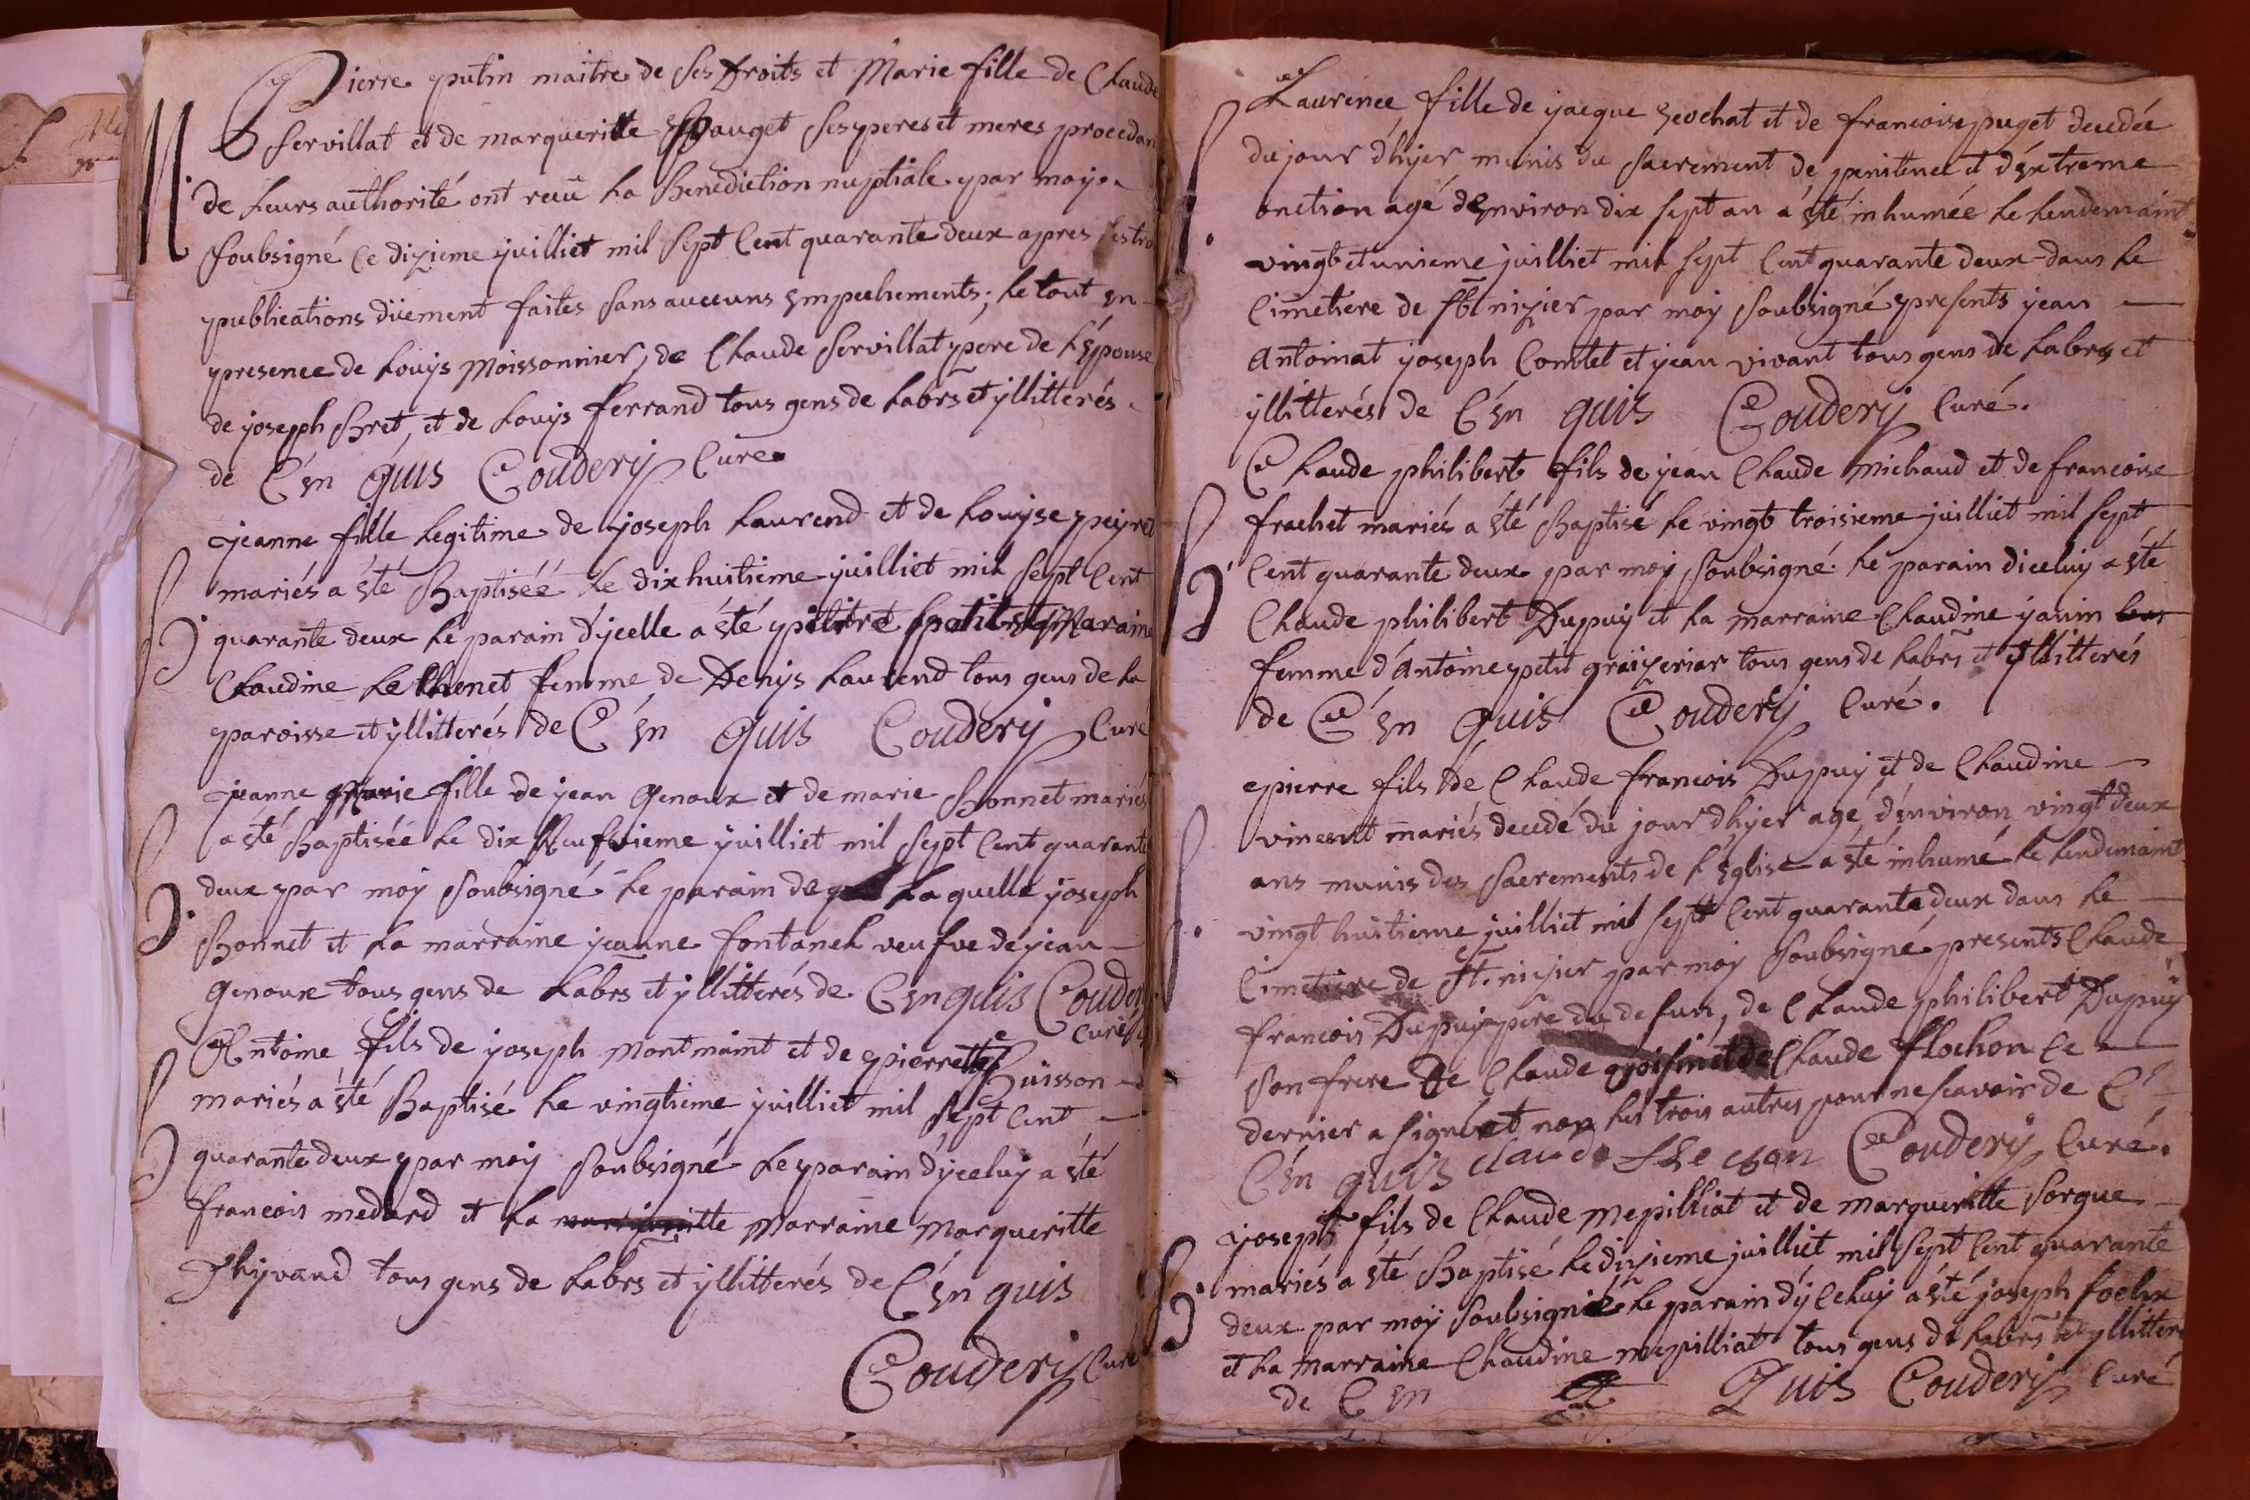 M.
Pierre putin maitre de ses Droits et Marie fille de Claude
Servillat et de marqueritte pauget ses peres et meres procedan
de leurs authorité ont reçu la Benediction nuptiale par moy
soubsigné ce dizieme juilliet mil sept Cent quarante deux apres les tro
publications düement faites sans aucuns Empechements; le tout En
presence de Louys Moissonnier, de Claude Servillat pere de L'Epouse
de joseph Bret, et de Louys ferrand tous gens de Labrs et yllitterés
de C'En quis Coudery Curé
B.
jeanne fille Legitime de joseph Laurend et de Louyse peyret
mariés a été Baptiséé le dix huitieme juilliet mil sept Cent
quarante deux le parain d'ycelle a été Maraine
Claudine femme de Denys Laurend tous gens de La
paroisse et yllitterés de C'En quis Coudery Curé
B.
jeanne Marie fille de jean Genoux et de marie Bonnet mariés
a été Baptisée le dix Neufvieme juilliet mil sept Cent quarante
deux par moy soubsigné le parain de Laquelle joseph
Bonnet et La marraine jeanne fontanel veufve de jean
Genoux tous gens de Labrs et yllitterés de C'En quis Coudery
Curé
B
Antoine fils de joseph Montmaint et de pierrette Buisson
mariés a été Baptisé le vingtieme juilliet mil sept Cent
quarante deux par moy soubsigné le parain d'yceluy a été
francois medard et La marraine Marqueritte
Thyvand tous gens de Labrs et yllitterés de C'En quis
Coudery Curé
S.
Laurence, fille de jacque et de francoise puget decedée
du jour d'hyer munis du sacrement de penitence et d'Extreme
onction agé d'Environ dix sept an a été inhumée le Lendemaint
vingt et unieme juilliet mil sept Cent quarante deux dans le
Cimetiere de St. nizier par moy soubsigné presents jean
Antoinat joseph Comtet et jean vivant tous gens de Labrs et
yllitterés de C'En quis Coudery Curé.
B
Claude philibert fils de jean Claude Michaud et de francoise
frachet mariés a été Baptisé le vingt troisieme juilliet mil sept
Cent quarante deux par moy soubsigné le parain d'iceluy a été
Claude philibert Dupuy et La marraine Claudine janin
femme d'Antoine petit tous gens de Labrs et yllitterés
de C'En quis Coudery Curé.
S.
pierre fils de Claude francois Dupuy et de Claudine
vincent mariés decedé du jour d'hyer agé d'Environ vingt deux
ans munis des sacrements de l'Eglise a été inhumé le Lendemaint
vingt huitieme juilliet mil sept Cent quarante deux dans le
Cimetiere de St. nizier par moy soubsigné presents Claude
francois Dupuy pere du defun, de Claude philibert Dupuy
son frere De Claude et de Claude flochon Ce
dernier a signé et non les trois autres pour ne scavoir de C'
C'En quis Coudery Curé.
B.
joseph fils de Claude Mepilliat et de Marqueritte Sorgue
mariés a été Baptisé le dizieme juilliet mil sept Cent quarante
deux par moy soubsigné le parain d'yceluy a été joseph
et La marraine Claudine mepilliat tous gens de Labrs et yllitter
de C'En Quis Coudery Curé